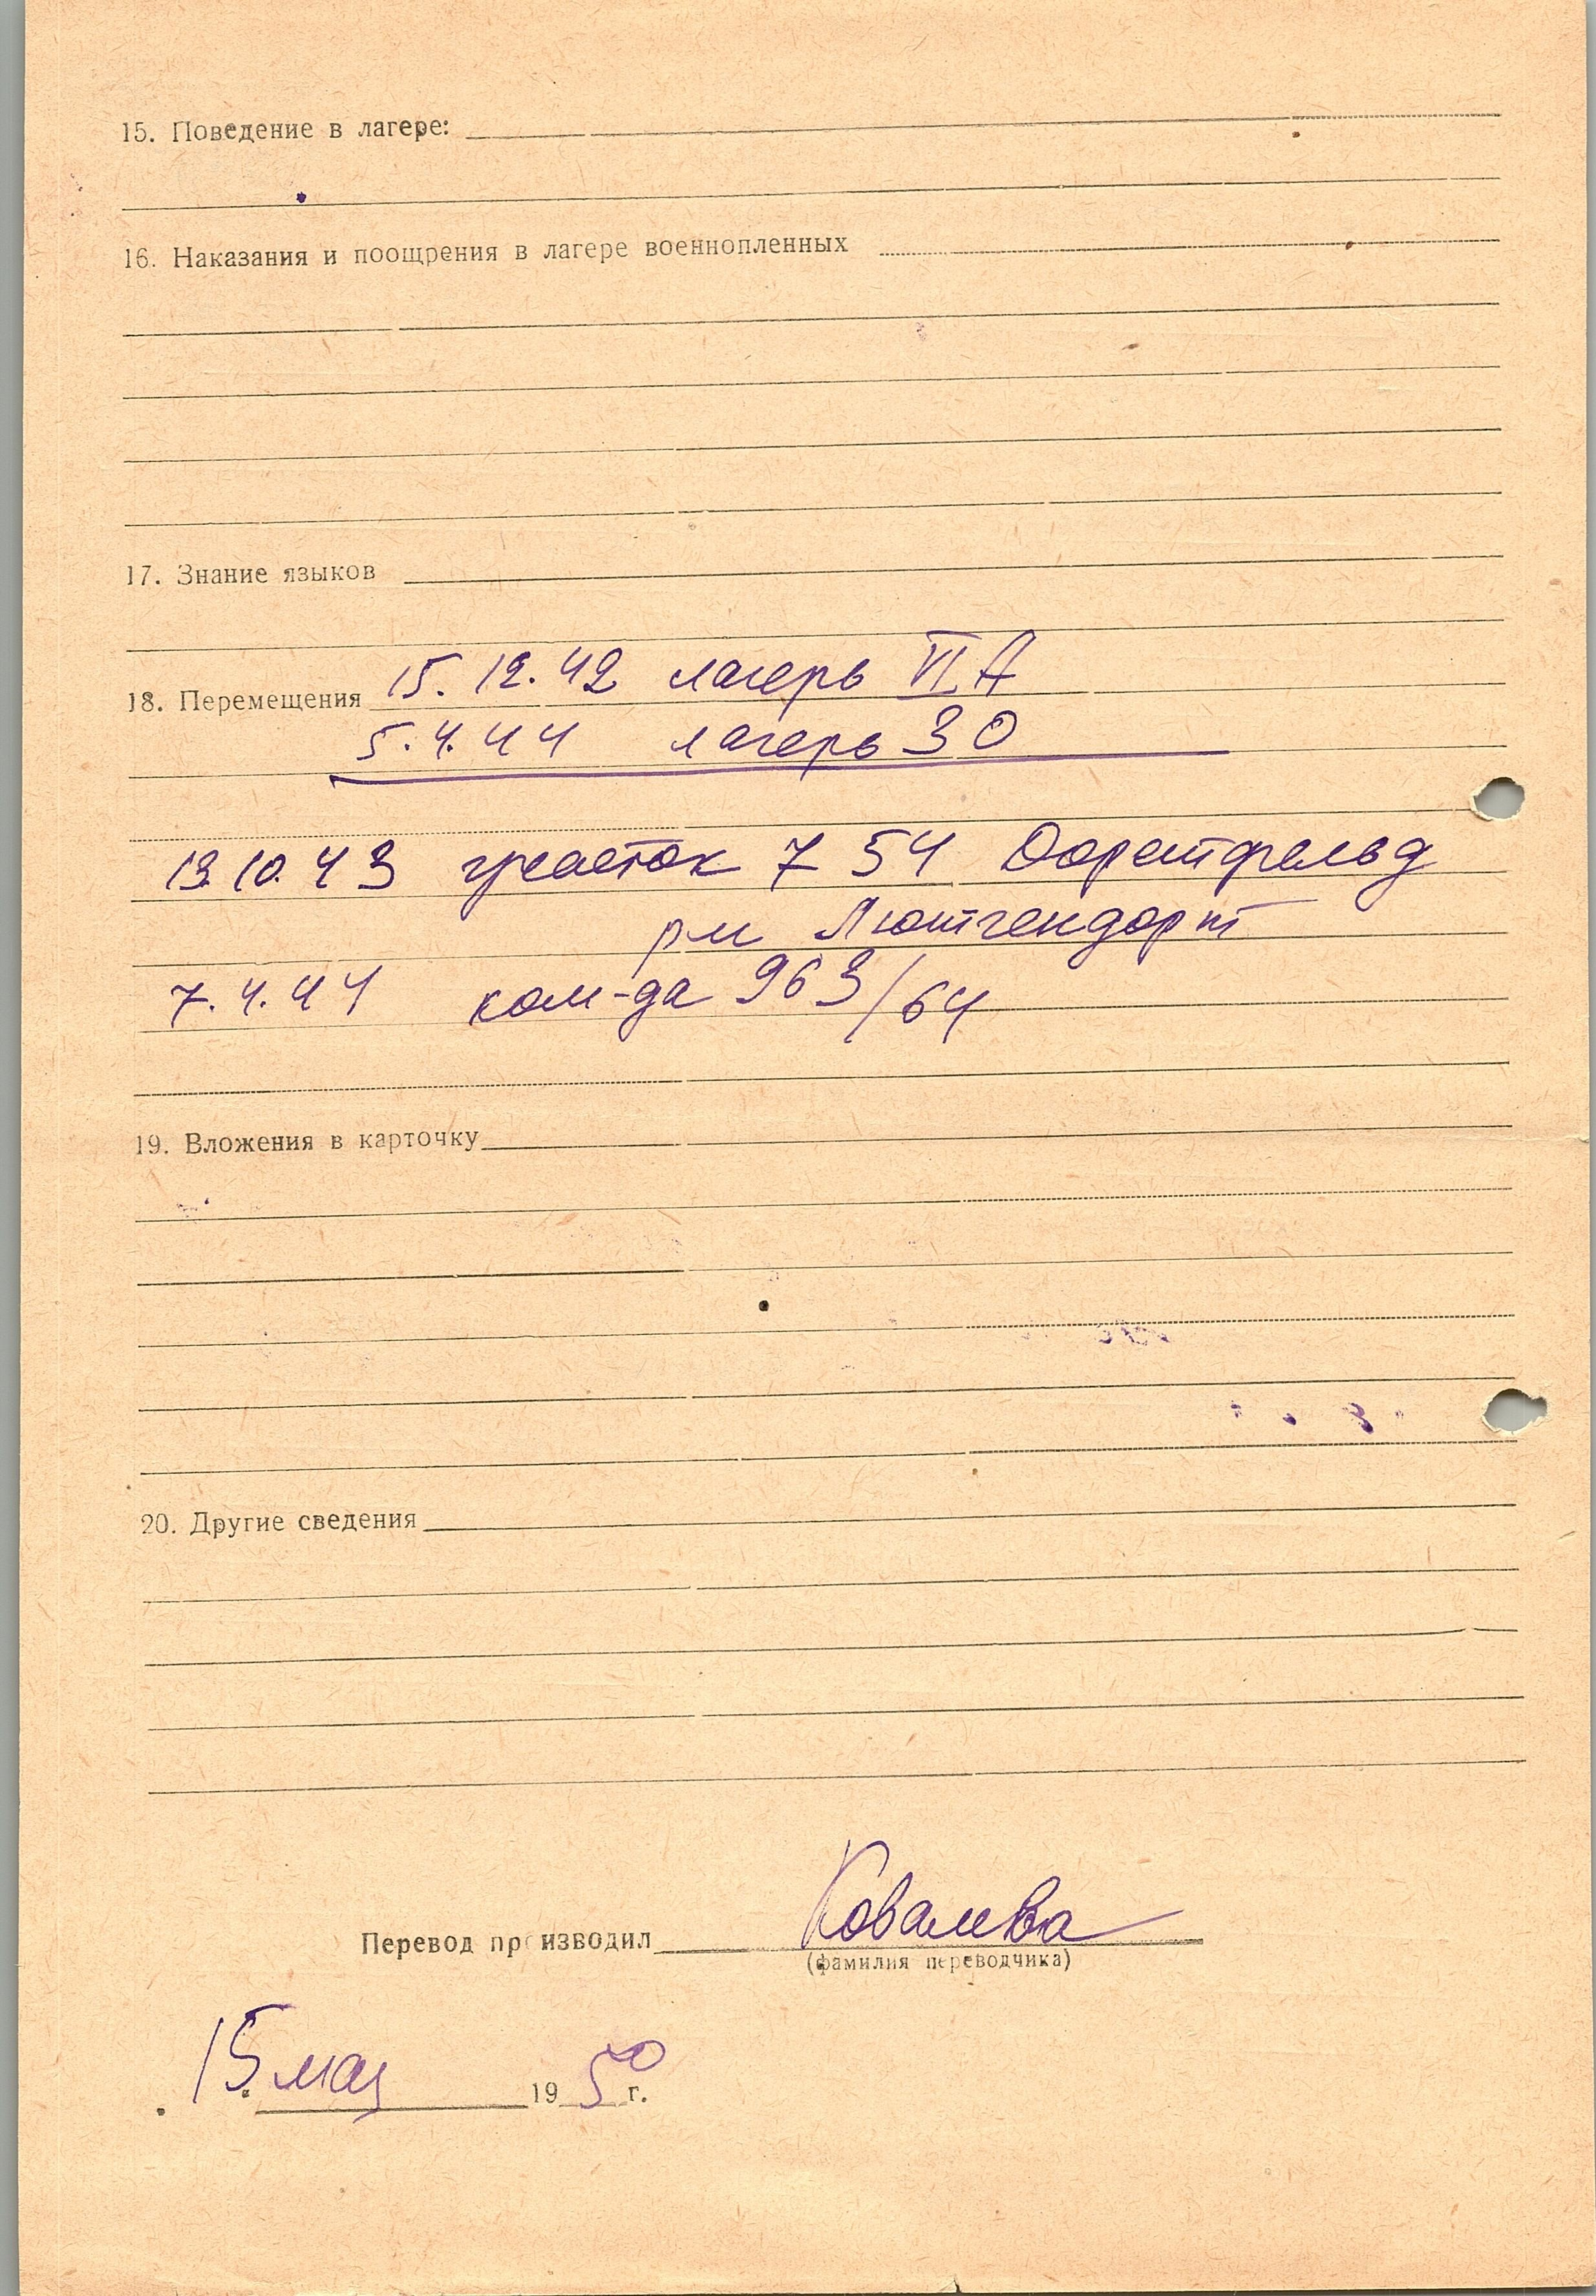 15. Поведение в лагере:
16. Наказания и поощрения в лагере военнопленных
17. Знание языков
18. Перемещения 15.12.42 лагерь VI A
5.4.44 лагерь 30
13.10.43 участок 7 54 Дорстфельд
рм Лютгендорт
7.4.44 ком-да 963/64
19. Вложения в карточку
20. Другие сведения
Перевод производил Ковалева
(фамилия переводчика)
15 мая 1950 г.